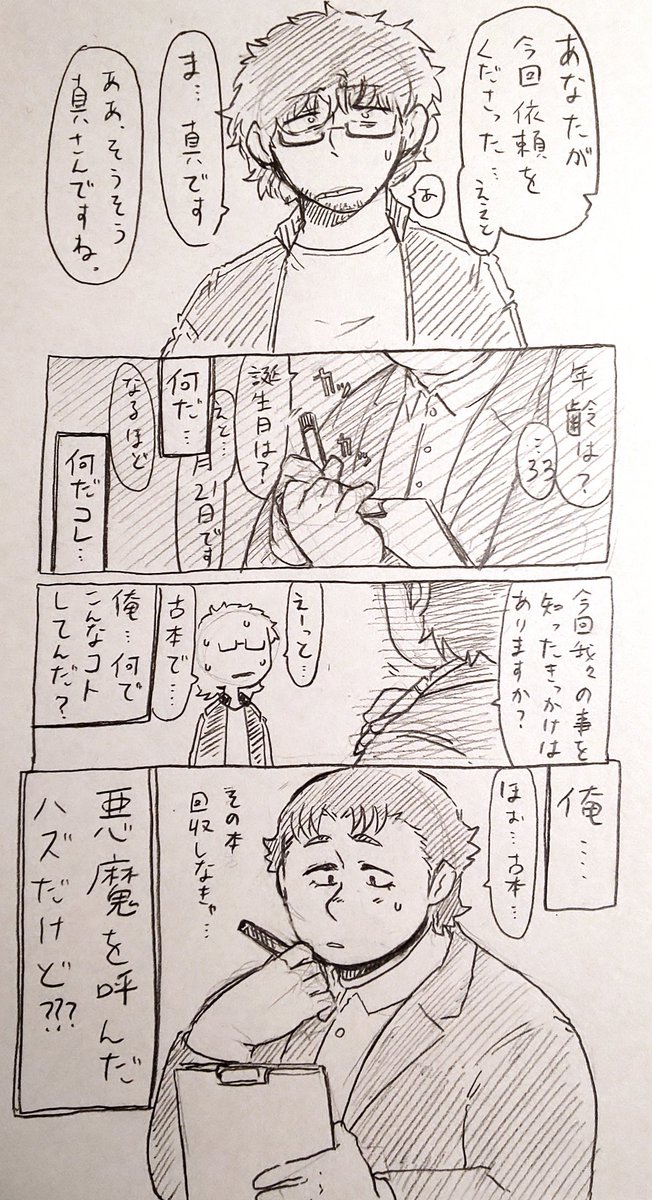 あなたが
今回依頼を
くださった…ええと
あ
ま…真です
ああ、そうそう
真さんですね。
年齢は?
…33
ガッ
ガッ
誕生日は?
えと…
月21日です
何だ…
なるほど
何だコレ…
今回我々の事を
知ったきっかけは
ありますか?
えーっと…
古本で…
俺…何で
こんなコト
してんだ?
俺…
ほお…古本…
その本
回収しなきゃ…
悪魔を呼んだ
ハズだけど???